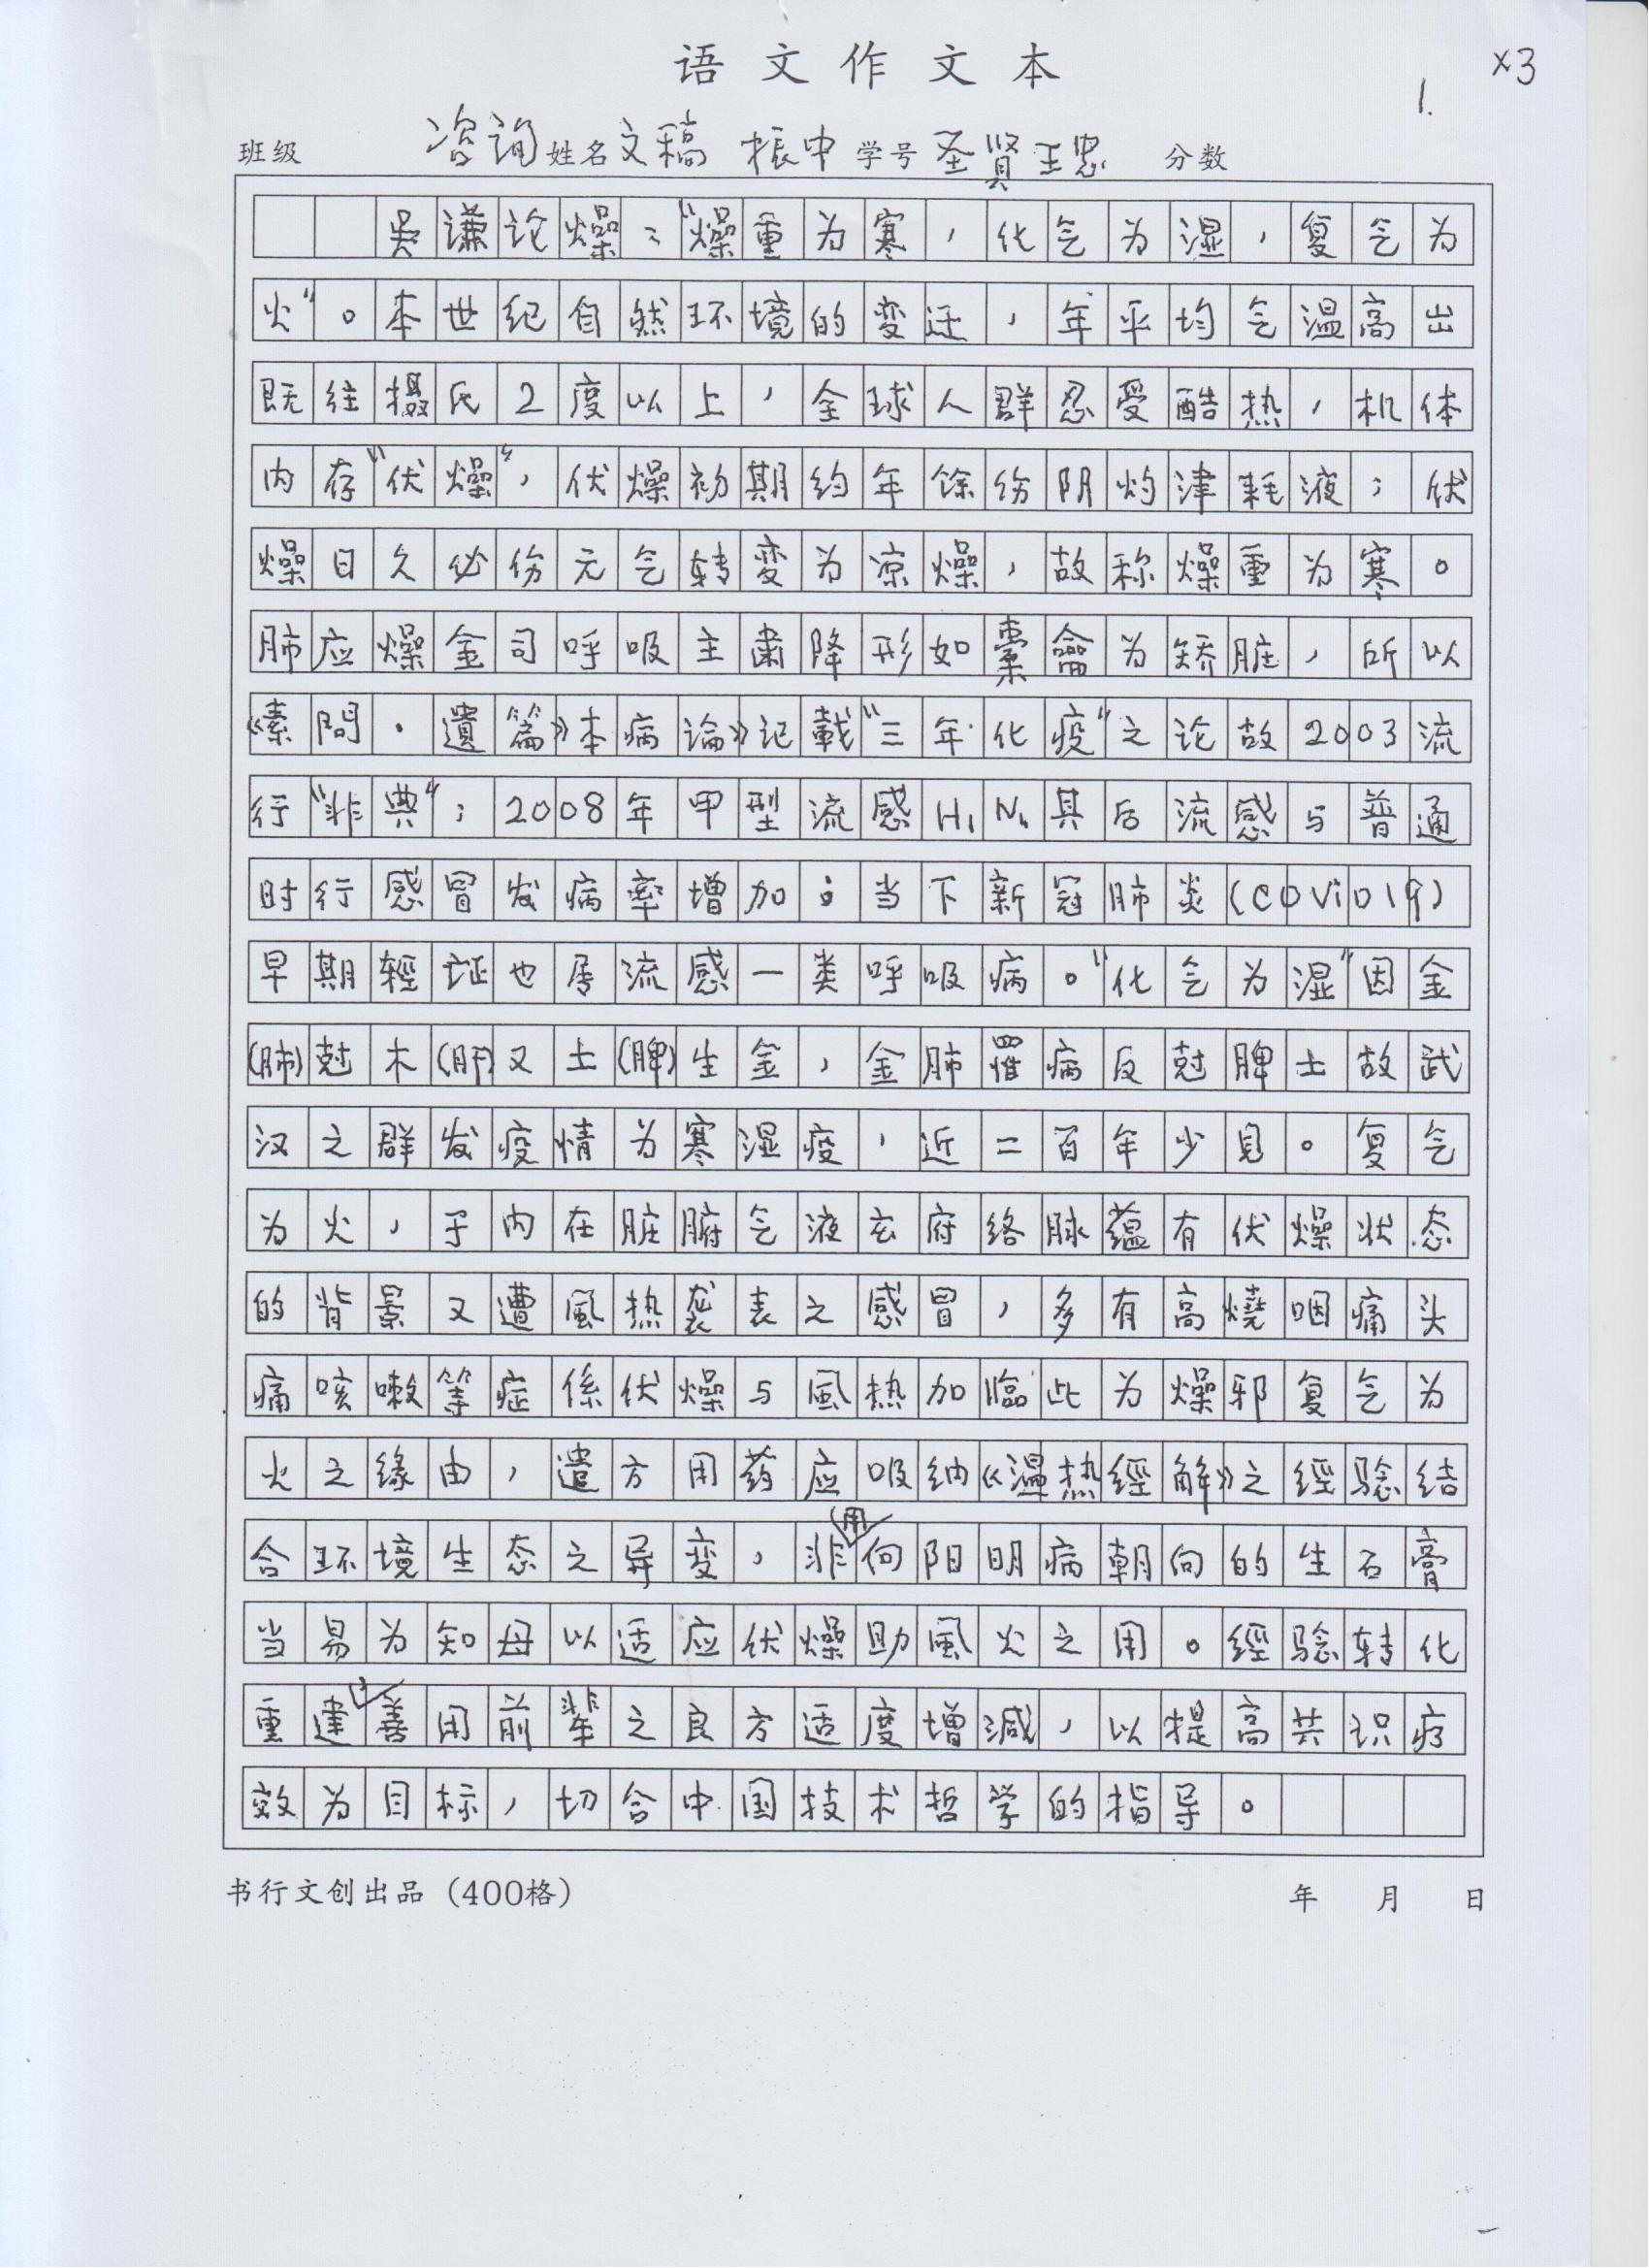 语文作文本
×3
1.
班级 咨询 姓名 文稿 振中 学号 圣贤王忠 分数
吴谦论燥："燥重为寒，化气为湿，复气为
火"。本世纪自然环境的变迁，年平均气温高出
既往摄氏2度以上，全球人群忍受酷热，机体
内存"伏燥"，伏燥初期约年馀伤阴灼津耗液；伏
燥日久必伤元气转变为凉燥，故称燥重为寒。
肺应燥金司呼吸主肃降形如橐龠为矫脏，所以
《素问·遗篇》本病论》记载"三年化疫"之论故2003流
行"非典"；2008年甲型流感H1N1其后流感与普通
时行感冒发病率增加；当下新冠肺炎(COViD19)
早期輕证也属流感一类呼吸病。"化气为湿"因金
(肺)尅木(肝)又土(脾)生金，金肺罹病反尅脾土故武
汉之群发疫情为寒湿疫，近二百年少见。复气
为火，于内在脏腑气液玄府络脉蕴有伏燥状态
的背景又遭風热袭表之感冒，多有高燒咽痛头
痛咳嗽等症係伏燥与風热加臨此为燥邪复气为
火之缘由，遣方用药应吸纳《温热經解》之經驗结
合环境生态之异变，非用向阳明病朝向的生石膏
当易为知母以适应伏燥助風火之用。經驗转化
重建，善用前辈之良方适度增减，以提高共识疗
效为目标，切合中国技术哲学的指导。
书行文创出品（400格） 年 月 日